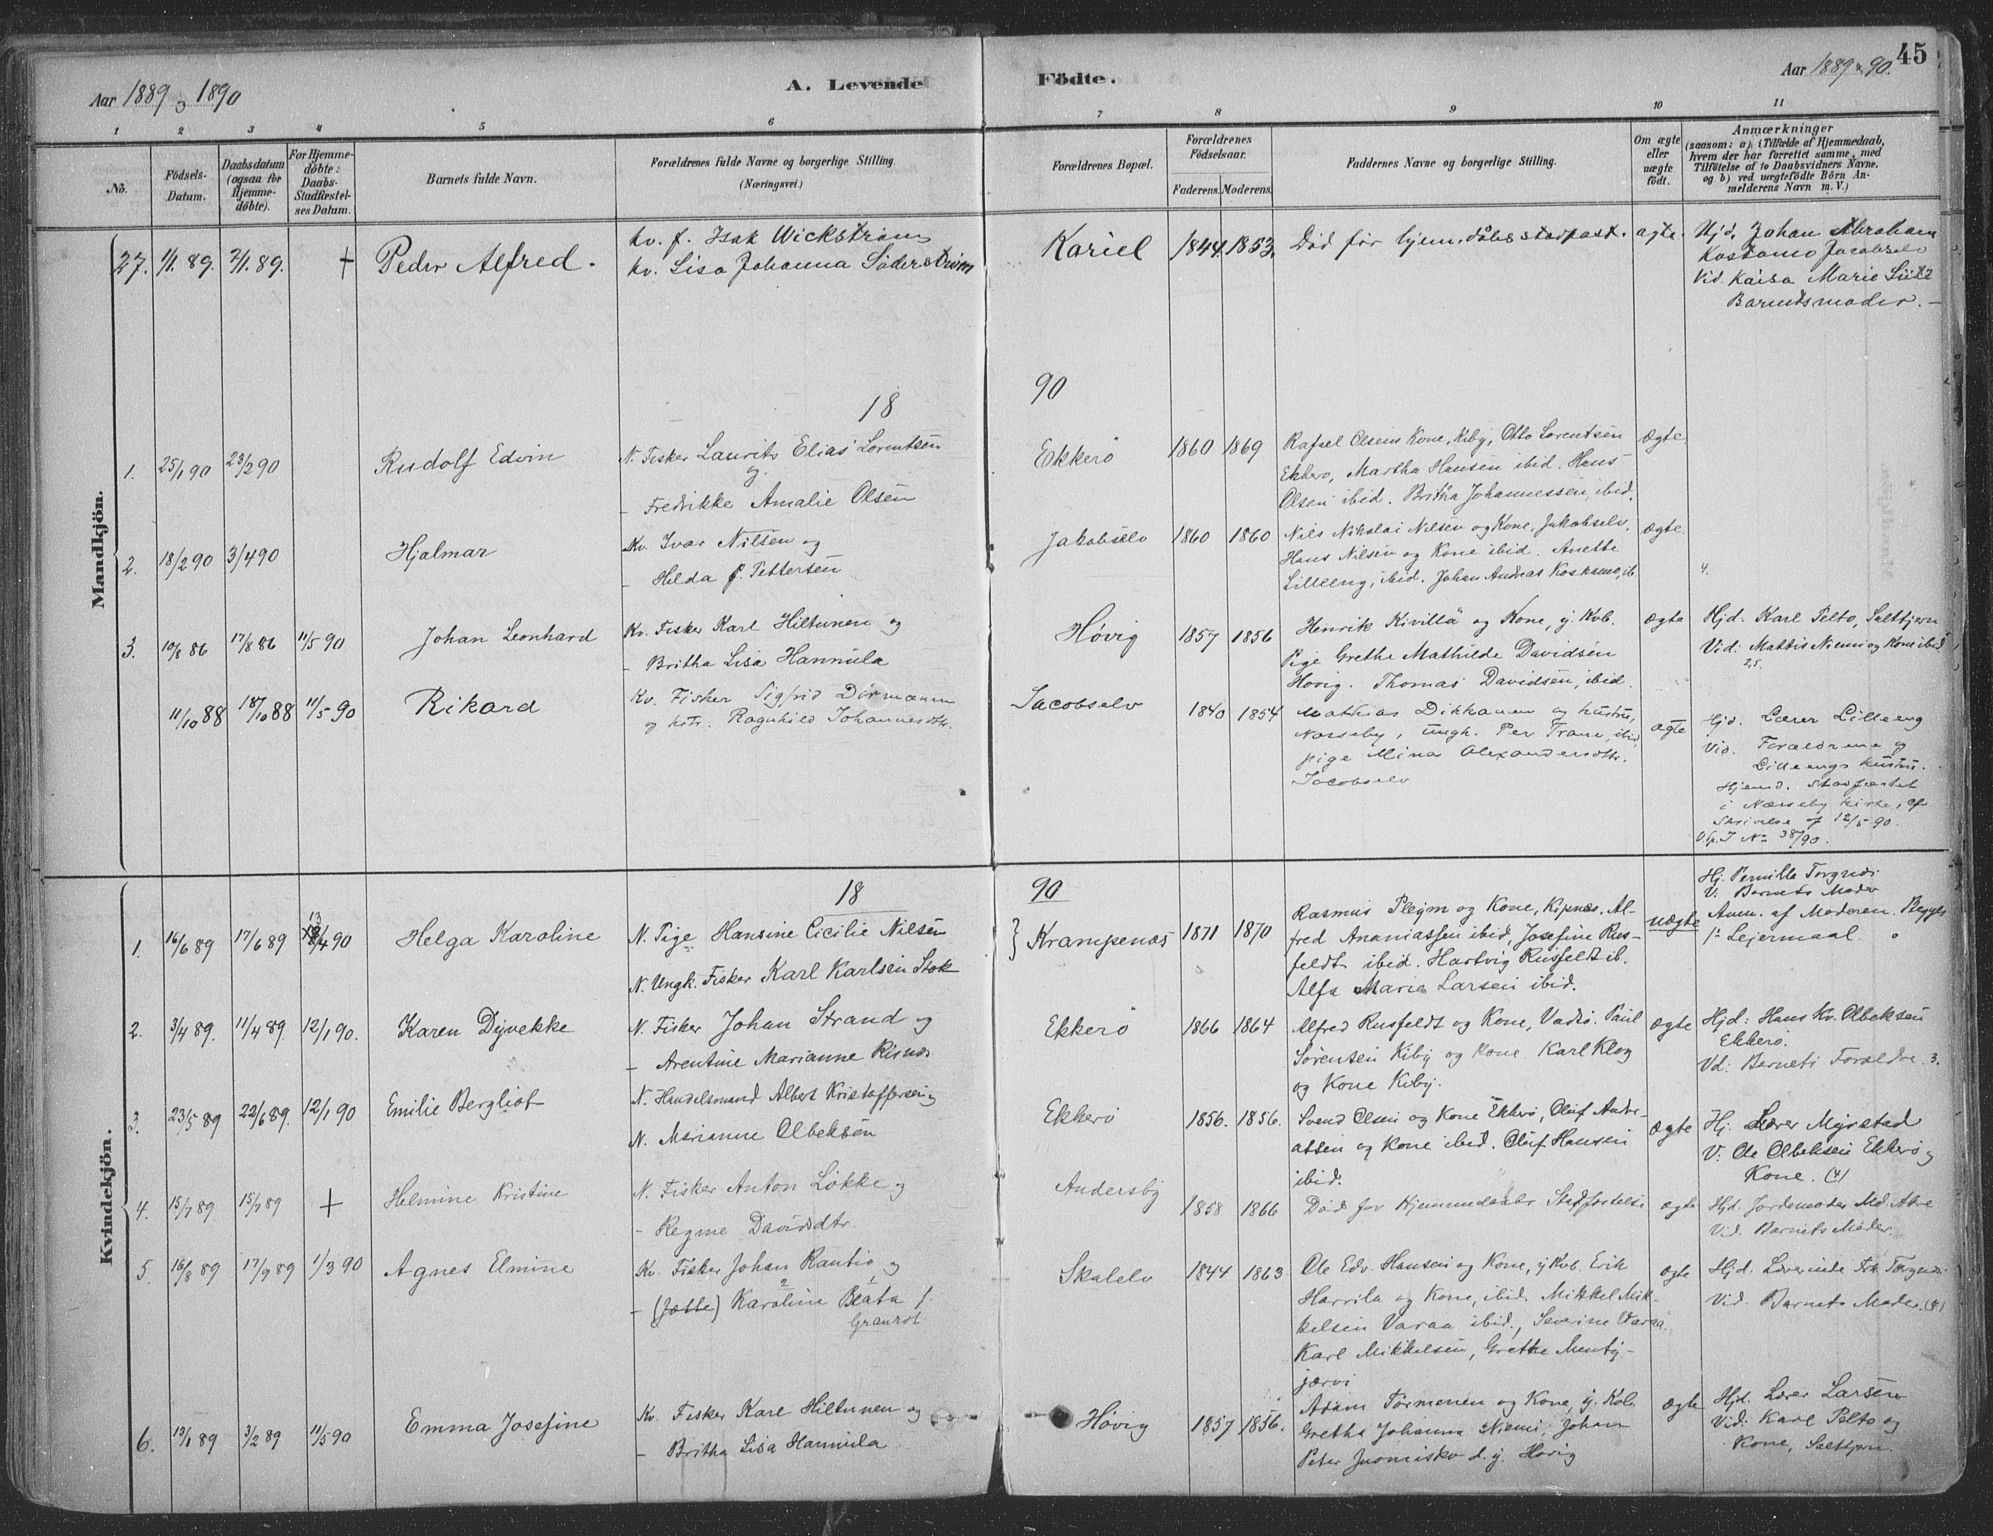 Aar 1889 og 1890
A. Levende Födte.
Aar 1889 & 90.
45
1 2 3 4 5 6 7 8 9 10 11
No.
Födsels-Datum.
Daabsdatum (ogsaa for Hjemme-döbte).
For Hjemme-döbte: Daabs-Stadfæstel-ses Datum.
Barnets fulde Navn.
Forældrenes fulde Navne og borgerlige Stilling.
(Næringsvei.)
Forældrenes Bopæl.
Forældrenes Födselsaar.
Faderens. Moderens.
Faddernes Navne og borgerlige Stilling.
Om ægte eller uægte födt.
Anmærkninger
(saasom: a) i Tilfælde af Hjemmedaab,
hvem der har forrettet samme, med
Tilföielse af to Daabsvidners Navne,
og b) ved uægtefödte Börn An-
melderens Navn m. V.)
Mandkjön.
27. 1/1. 89. 2/1. 89. + Peder Alfred.
Kv. f. Isak Wickström
kv. Lisa Johanna Söderström
Kariel 1844 1853. Død før hjemdåbsstadfæst. ægte.
Hjd. Johan Abraham
Kostamo Jacobselv
Vid. Kaisa Marie
Barnetsmoder. —
18 90
1. 25/1 90 23/2 90 Rudolf Edvin
N. Fisker Laurits Elias Lorentsen
og
– Fredrikke Amalie Olsen
Ekkerø 1860 1869
Rafael Olsens Kone, Kiby, Otto Lorentsen
Ekkerø, Martha Hansen ibid. Hans
Olsen ibid. Britha Johannessen, ibid.
ægte
2. 18/2 90 3/4 90 Hjalmar
Kv. Ivar Nilsen og
– Helda f. Pettersen
Jakobselv 1860 1860
Nils Nikolai Nilsen og Kone, Jakobselv.
Hans Nilsen og Kone ibid. Anette
Lilleeng, ibid. Johan Andreas Koskamo, ib.
ægte.
4.
3. 10/8 86 17/8 86 11/5 90 Johan Leonhard
Kv. Fisker Karl Hiltunen og
– Britha Lisa Hannula
Høvig 1857 1856
Henrik Kivillä og Kone, y. Kvb.
Pige Grethe Mathilde Davidsen
Høvig. Thomas Davidsen, ibid.
ægte
Hjd. Karl Pelto, Saltbjern
Vid: Mattis Niemi og Kone ibid.
25.
11/10 88 18/10 88 11/5 90 Rikard
Kv. Fisker Sigfrid Dørmænen
og hstr. Ragnhild Johannesdtr.
Jacobselv 1840 1854
Mathias Dikkanen og hustru,
Næsseby, Ungk. Per Trane, ibid,
pige Mina Alexandersdtr.
Jacobselv
ægte
Hjd. Lærer Lilleeng
Vid. Forældrene og
Lilleengs hustru.
Hjemd. Stadfæstet
i Næsseby kirke, cfr
Skrivelse af 12/5 90.
No 38/90.
Kvindekjön.
18 90
1. 16/6 89 17/6 89 13/4 90 Helga Karoline
N. Pige Hansine Cicilie Nilsen
N. Ungk. Fisker Karl Karlsen Stok
Krampenæs 1871 1870
Rasmus Pleym og Kone, Kipnæs. Al-
fred Ananiassen ibid, Josefine Rus-
feldt ibid. Hartvig Rusfeldt ib.
Alfa Maria Larsen ibid.
uægte
Hj. Pernille Torgnæs
V: Barnets Moder
Anm. af Moderen. Begges
1ste Leiermaal.
2. 3/4 89. 11/4 89. 12/1 90. Karen Dyvekke
N. Fisker Johan Strand og
– Arentine Marianne Risnæs
Ekkerø 1866 1864
Alfred Rusfeldt og Kone, Vadsø. Paul
Sørensen Kiby og Kone. Karl Klog
og Kone Kiby.
ægte
Hjd: Hans Kv. Olbeksen
Ekkerø.
Vd: Barnets Forældre. 3.
3. 23/5 89 22/6 89. 12/1 90 Emilie Bergliot
N. Handelsmand Albert Kristoffersen og
N. Marianne Olbeksen
Ekkerø 1856. 1856.
Svend Olsen og Kone Ekkerø, Oluf Andre-
assen og Kone ibid. Oluf Hansen
ibid.
ægte
Hj. Lærer Myrstad
V: Ole Olbeksen Ekkerø og
Kone. (4)
4. 15/7 89. 15/7 89 + Helmine Kristine
N. Fisker Anton Løkke og
– Regine Davidsdtr.
Andersby 1858 1866
Død før Hjemmedaabs Stadfæstelse
ægte
Hjd. Jordemoder Md. Abre
Vid. Barnets Moder.
5. 16/8 89 17/9 89 1/3 90 Agnes Elmine
Kv. Fisker Johan Rautio og
– (Jætte) Karoline Beata f.
Granrot
Skalelv 1844 1863
Ole Edv. Hansen og Kone, y Kvb. Erik
Harrila og Kone, ibid. Mikkel Mik-
kelsen Varaa ibid., Severine Varaa.
Karl Mikkelsen, Grethe Menty-
jærvi
ægte
Hjd. Lærerinde Frk. Torgnæs
Vid. Barnets Moder. (4)
6. 13/1 89 3/2 89 11/5 90 Emma Josefine
Kv. Fisker Karl Hiltunen og
– Britha Lisa Hannula
Høvig 1857 1856.
Adam Tørmenen og Kone, y. Kvb.
Gretha Johanna Niemi, Johan
Peter Juoniisko d. y. Høvig
ægte
Hjd. Lærer Larsen
Vid: Karl Pelto og
Kone, Saltbjern.